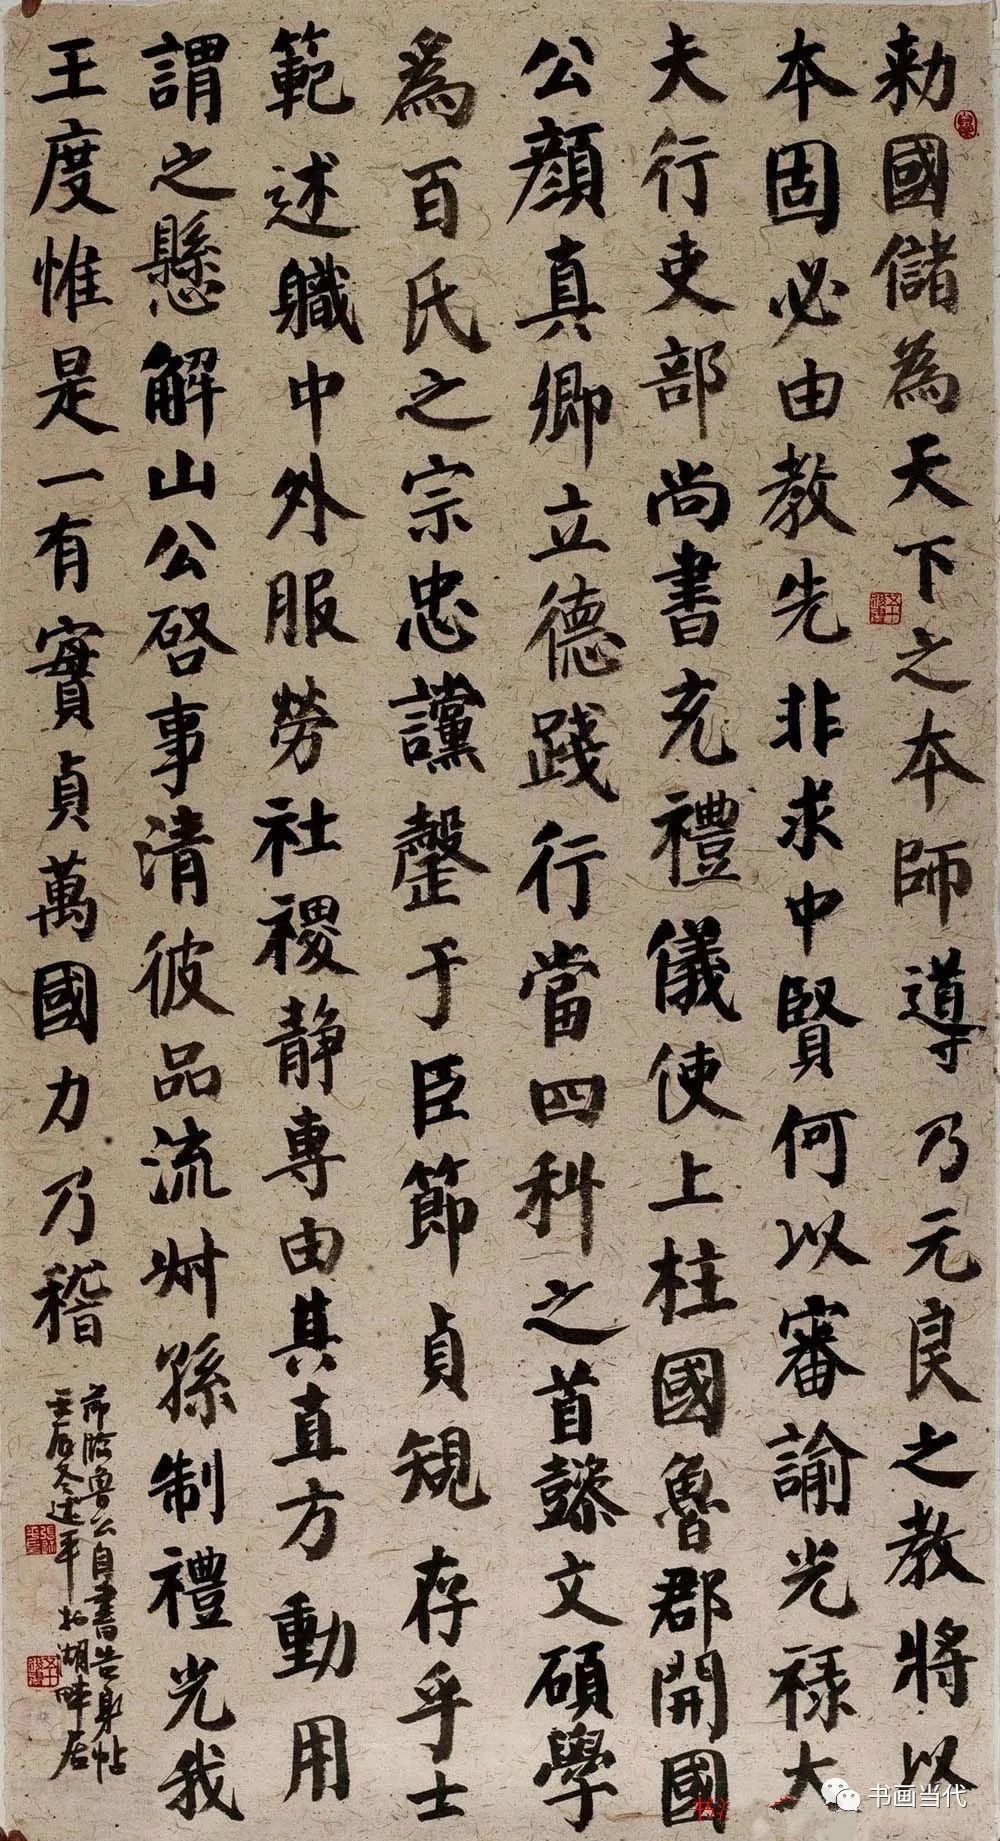 勑國儲為天下之本師導乃元良之教將以
本固必由教先非求中賢何以審諭光禄大
夫行吏部尚書充禮儀使上柱國魯郡開國
公顏真卿立德踐行當四科之首懿文碩學
為百氏之宗忠讜罄于臣節貞規存乎士
範述職中外服勞社稷静專由其直方動用
謂之懸解山公啓事清彼品流叔孫制禮光我
王度惟是一有實貞萬國力乃稽
節臨魯公自書告身帖
壬辰冬平於湖畔居
书画当代